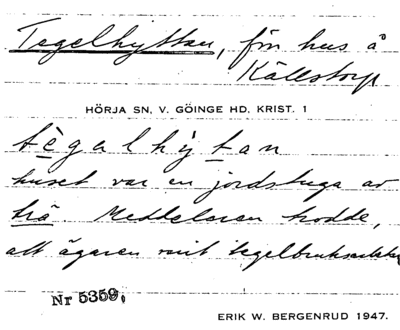 Tegelhyttan, för hus å
Källstorp
HÖRJA SN. V. GÖINGE HD. KRIST. 1
tègalhy̓tan
huset var en jordstuga av
trä. Meddelaren trodde,
att ägaren varit tegelbruksarbetare
Nr 5359.
ERIK W. BERGENRUD 1947.